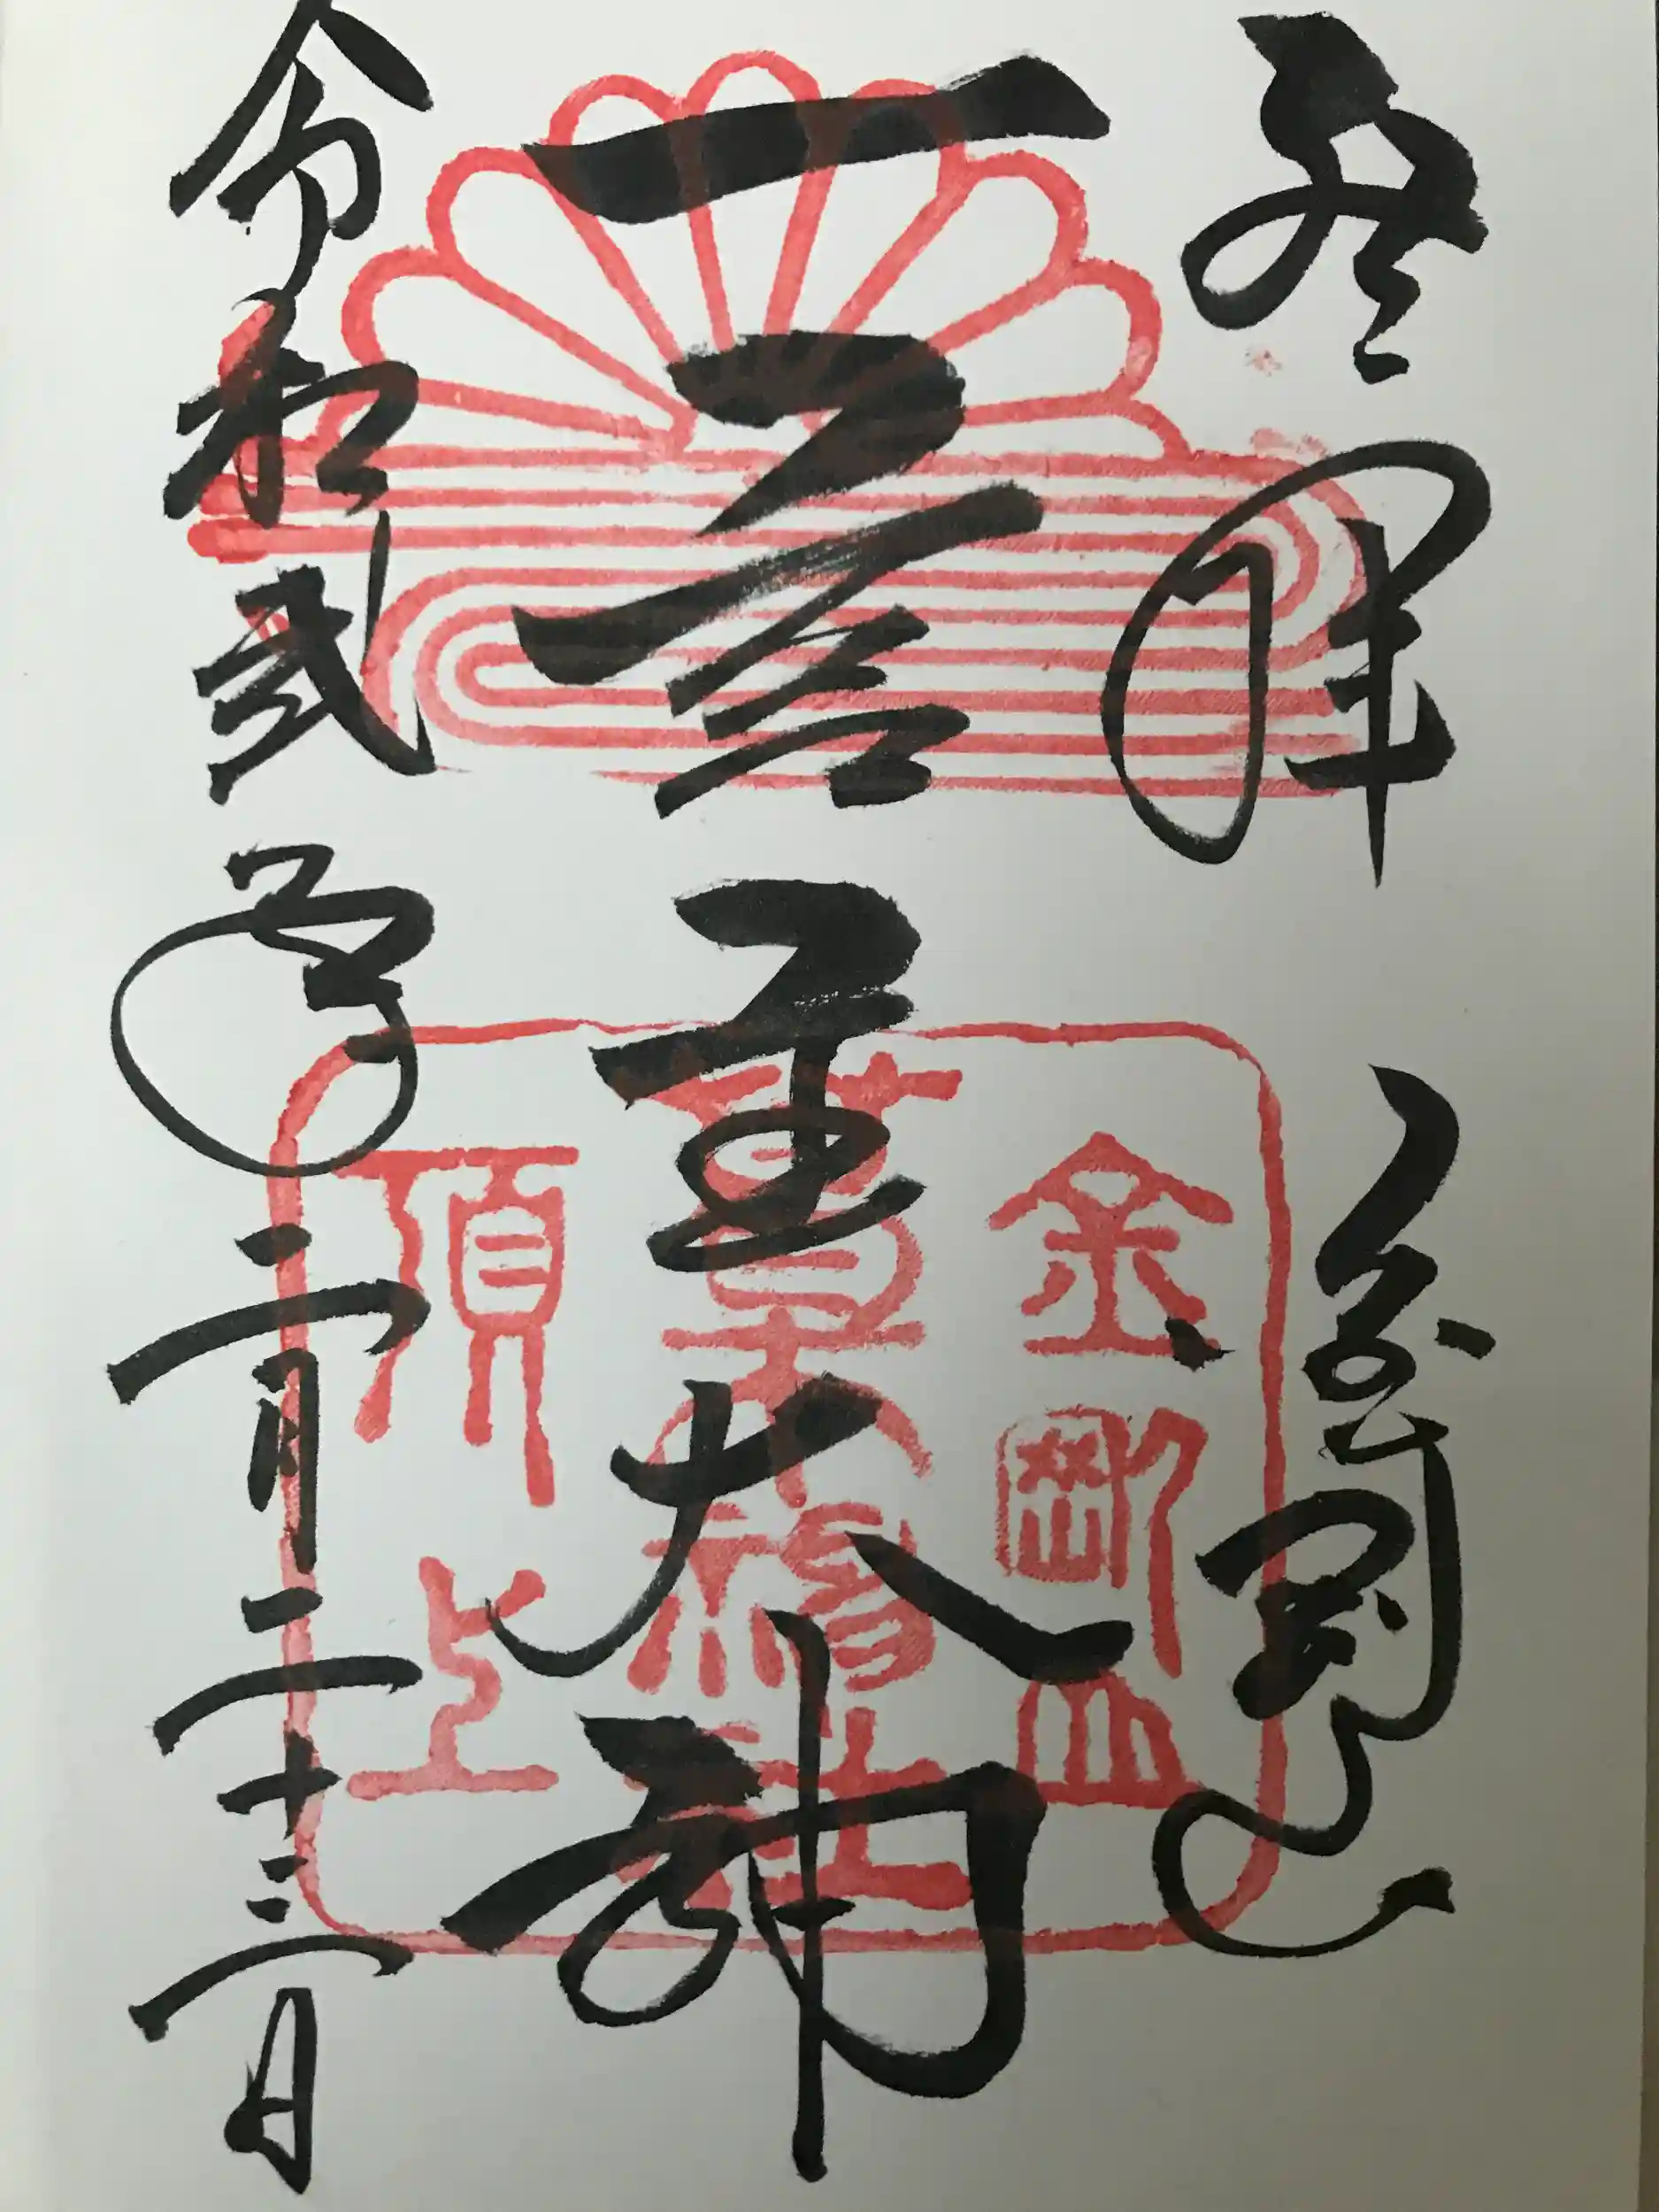 登拝 金剛山
一言主大神
令和弐年二月二十三日
金剛山
葛木神社
頂上